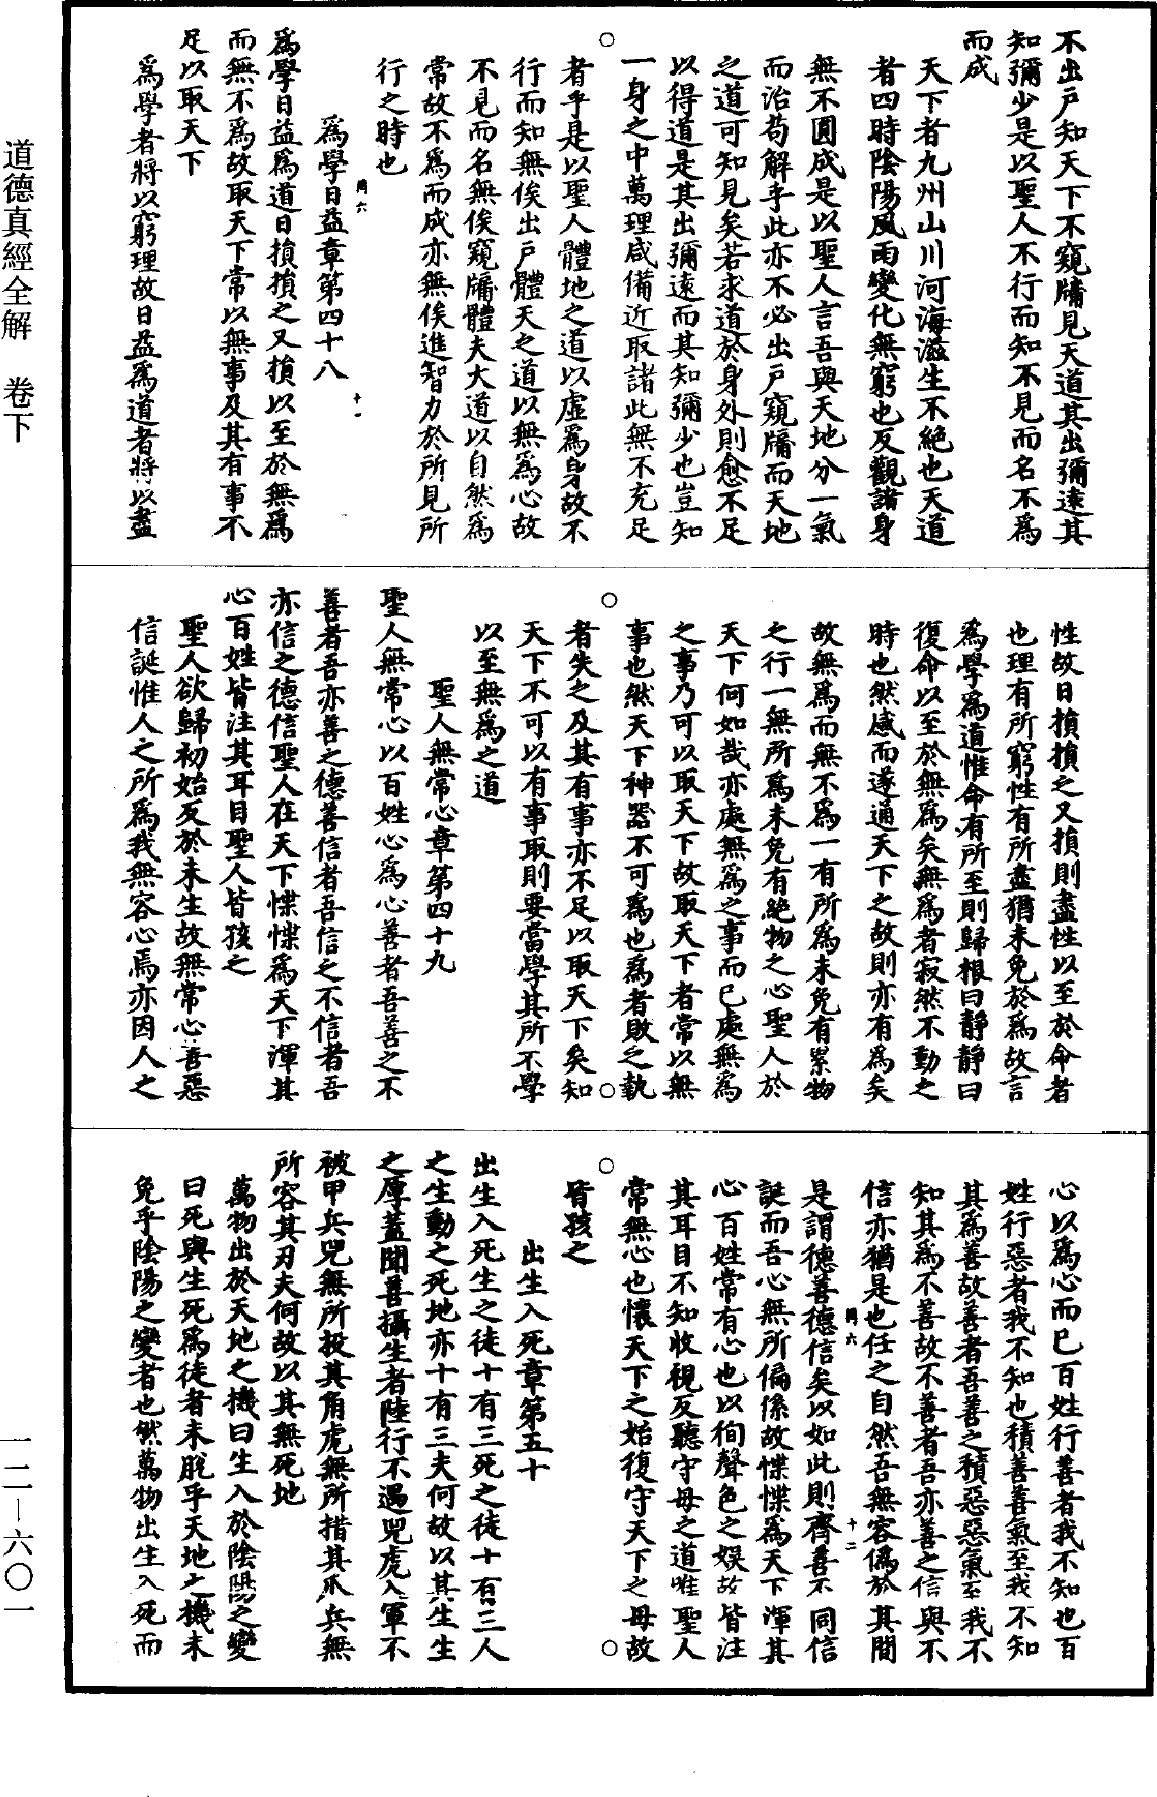 不出戶知天下不窺牖見天道其出彌遠其
知彌少是以聖人不行而知不見而名不爲
而成
天下者九州山川河海滋生不絕也天道
者四時陰陽風雨變化無窮也反觀諸身
無不圓成是以聖人言吾與天地分一氣
而治苟解乎此亦不必出戶窺牖而天地
之道可知見矣若求道於身外則愈不足
以得道是其出彌遠而其知彌少也豈知
一身之中萬理咸備近取諸此無不充足
者乎是以聖人體地之道以虛爲身故不
行而知無俟出戶體天之道以無爲心故
不見而名無俟窺牖體夫大道以自然爲
常故不爲而成亦無俟進智力於所見所
行之時也
爲學日益章第四十八
爲學日益爲道日損損之又損以至於無爲
而無不爲故取天下常以無事及其有事不
足以取天下
爲學者將以窮理故日益爲道者將以盡
性故日損損之又損則盡性以至於命者
也理有所窮性有所盡猶未免於爲故言
爲學爲道惟命有所至則歸根曰靜靜曰
復命以至於無爲矣無爲者寂然不動之
時也然感而遂通天下之故則亦有爲矣
故無爲而無不爲一有所爲未免有累物
之行一無所爲未免有絕物之心聖人於
天下何如哉亦處無爲之事而已處無爲
之事乃可以取天下故取天下者常以無
事也然天下神器不可爲也爲者敗之執
者失之及其有事亦不足以取天下矣知
天下不可以有事取則要當學其所不學
以至無爲之道
聖人無常心章第四十九
聖人無常心以百姓心爲心善者吾善之不
善者吾亦善之德善信者吾信之不信者吾
亦信之德信聖人在天下惵惵爲天下渾其
心百姓皆注其耳目聖人皆孩之
聖人欲歸初始反於未生故無常心善惡
信誕惟人之所爲我無容心焉亦因人之
心以爲心而已百姓行善者我不知也百
姓行惡者我不知也積善善氣至我不知
其爲善故善者吾善之積惡惡氣至我不
知其爲不善故不善者吾亦善之信與不
信亦猶是也任之自然吾無容僞於其間
是謂德善德信矣以如此則齊善不同信
誕而吾心無所偏係故惵惵爲天下渾其
心百姓常有心也以徇聲色之娛故皆注
其耳目不知收視反聽守母之道唯聖人
常無心也懷天下之始復守天下之母故
皆孩之
出生入死章第五十
出生入死生之徒十有三死之徒十有三人
之生動之死地亦十有三夫何故以其生生
之厚蓋聞善攝生者陸行不遇兕虎入軍不
被甲兵兕無所投其角虎無所措其爪兵無
所容其刃夫何故以其無死地
萬物出於天地之機曰生入於陰陽之變
曰死與生死爲徒者未脫乎天地之機未
免乎陰陽之變者也然萬物出生入死而
道德真經全解　卷下
一二－六〇一